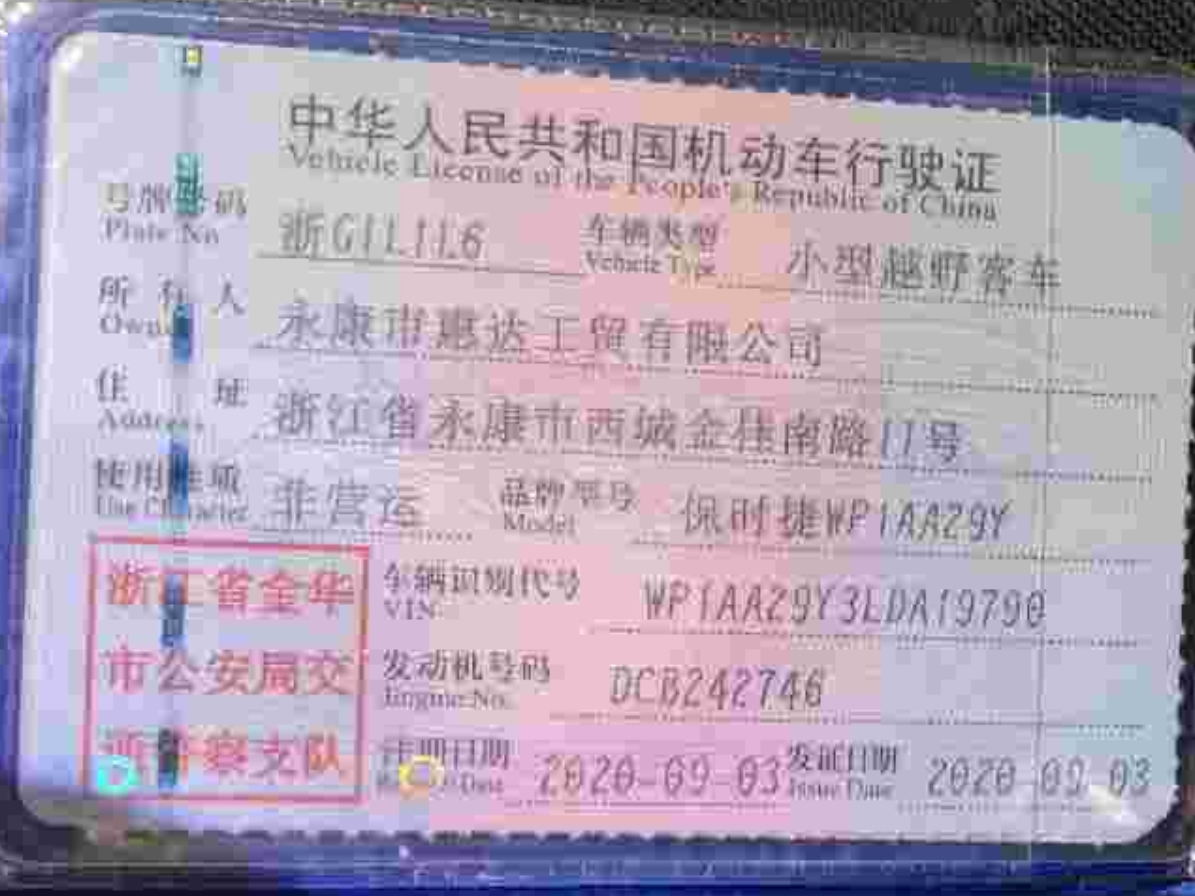 中华人民共和国机动车行驶证
Vehicle License of the People's Republic of China
号牌号码 浙G11116 车辆类型 小型越野客车
Plate No. Vehicle Type
所有人 永康市惠达工贸有限公司
Owner
住址 浙江省永康市西城金佳南路11号
Address
使用性质 非营运 品牌型号 保时捷WP1AA29Y
Use Character Model
浙江省金华
市公安局交
通警察支队
车辆识别代号 WP1AA29Y3LDA19790
VIN
发动机号码 DCB242746
Engine No.
注册日期 2020-09-03 发证日期 2020-09-03
Date Issue Date